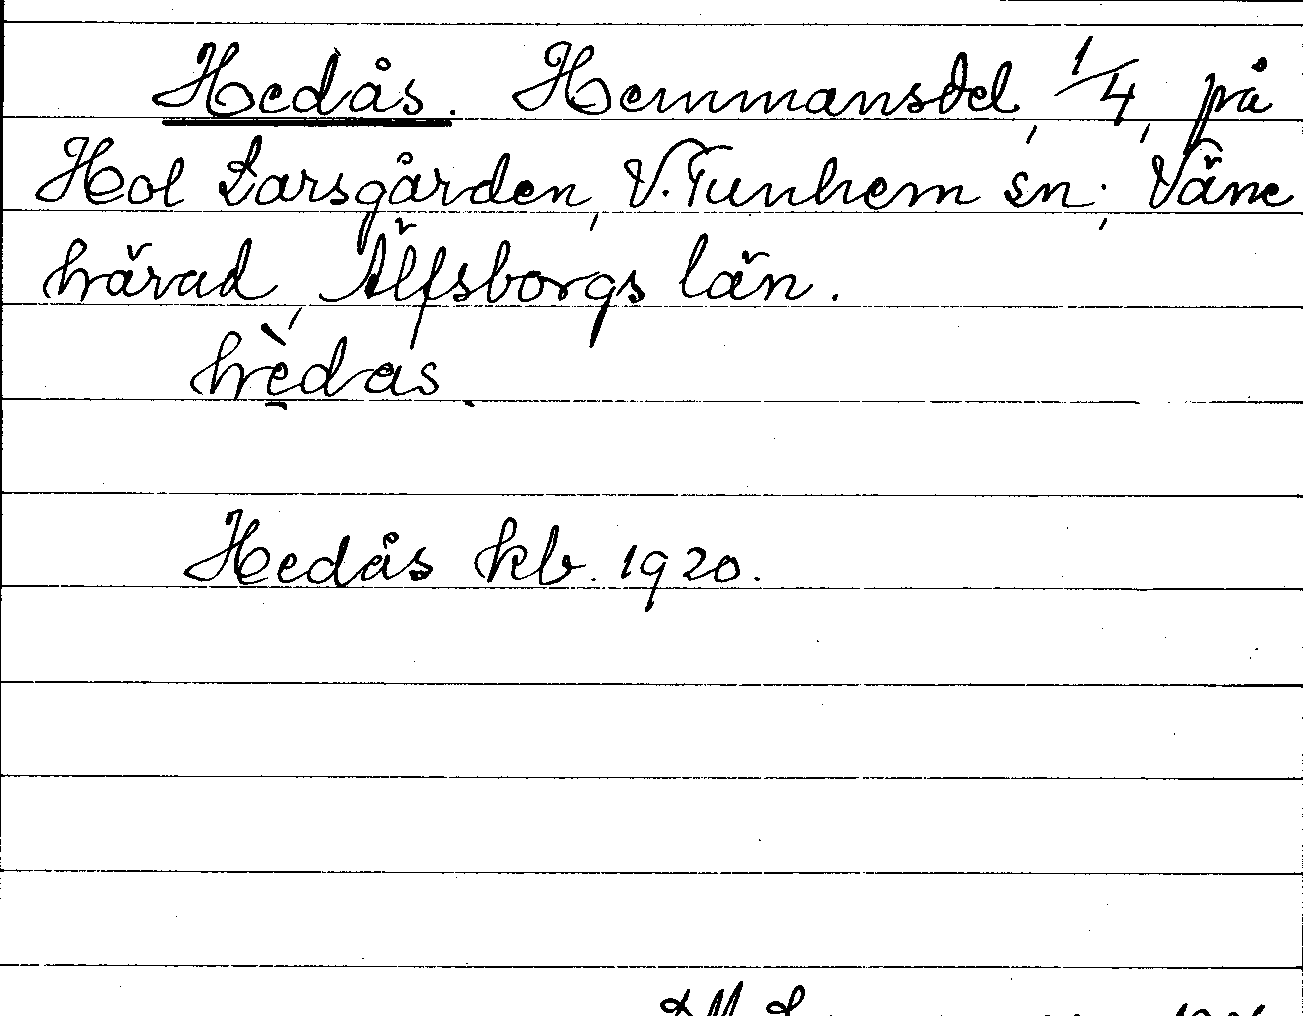 Hedås. Hemmansdel, 1/4, på
Hol Larsgården, V. Tunhem sn; Väne
härad, Älfsborgs län.
hèdas
Hedås kb. 1920.